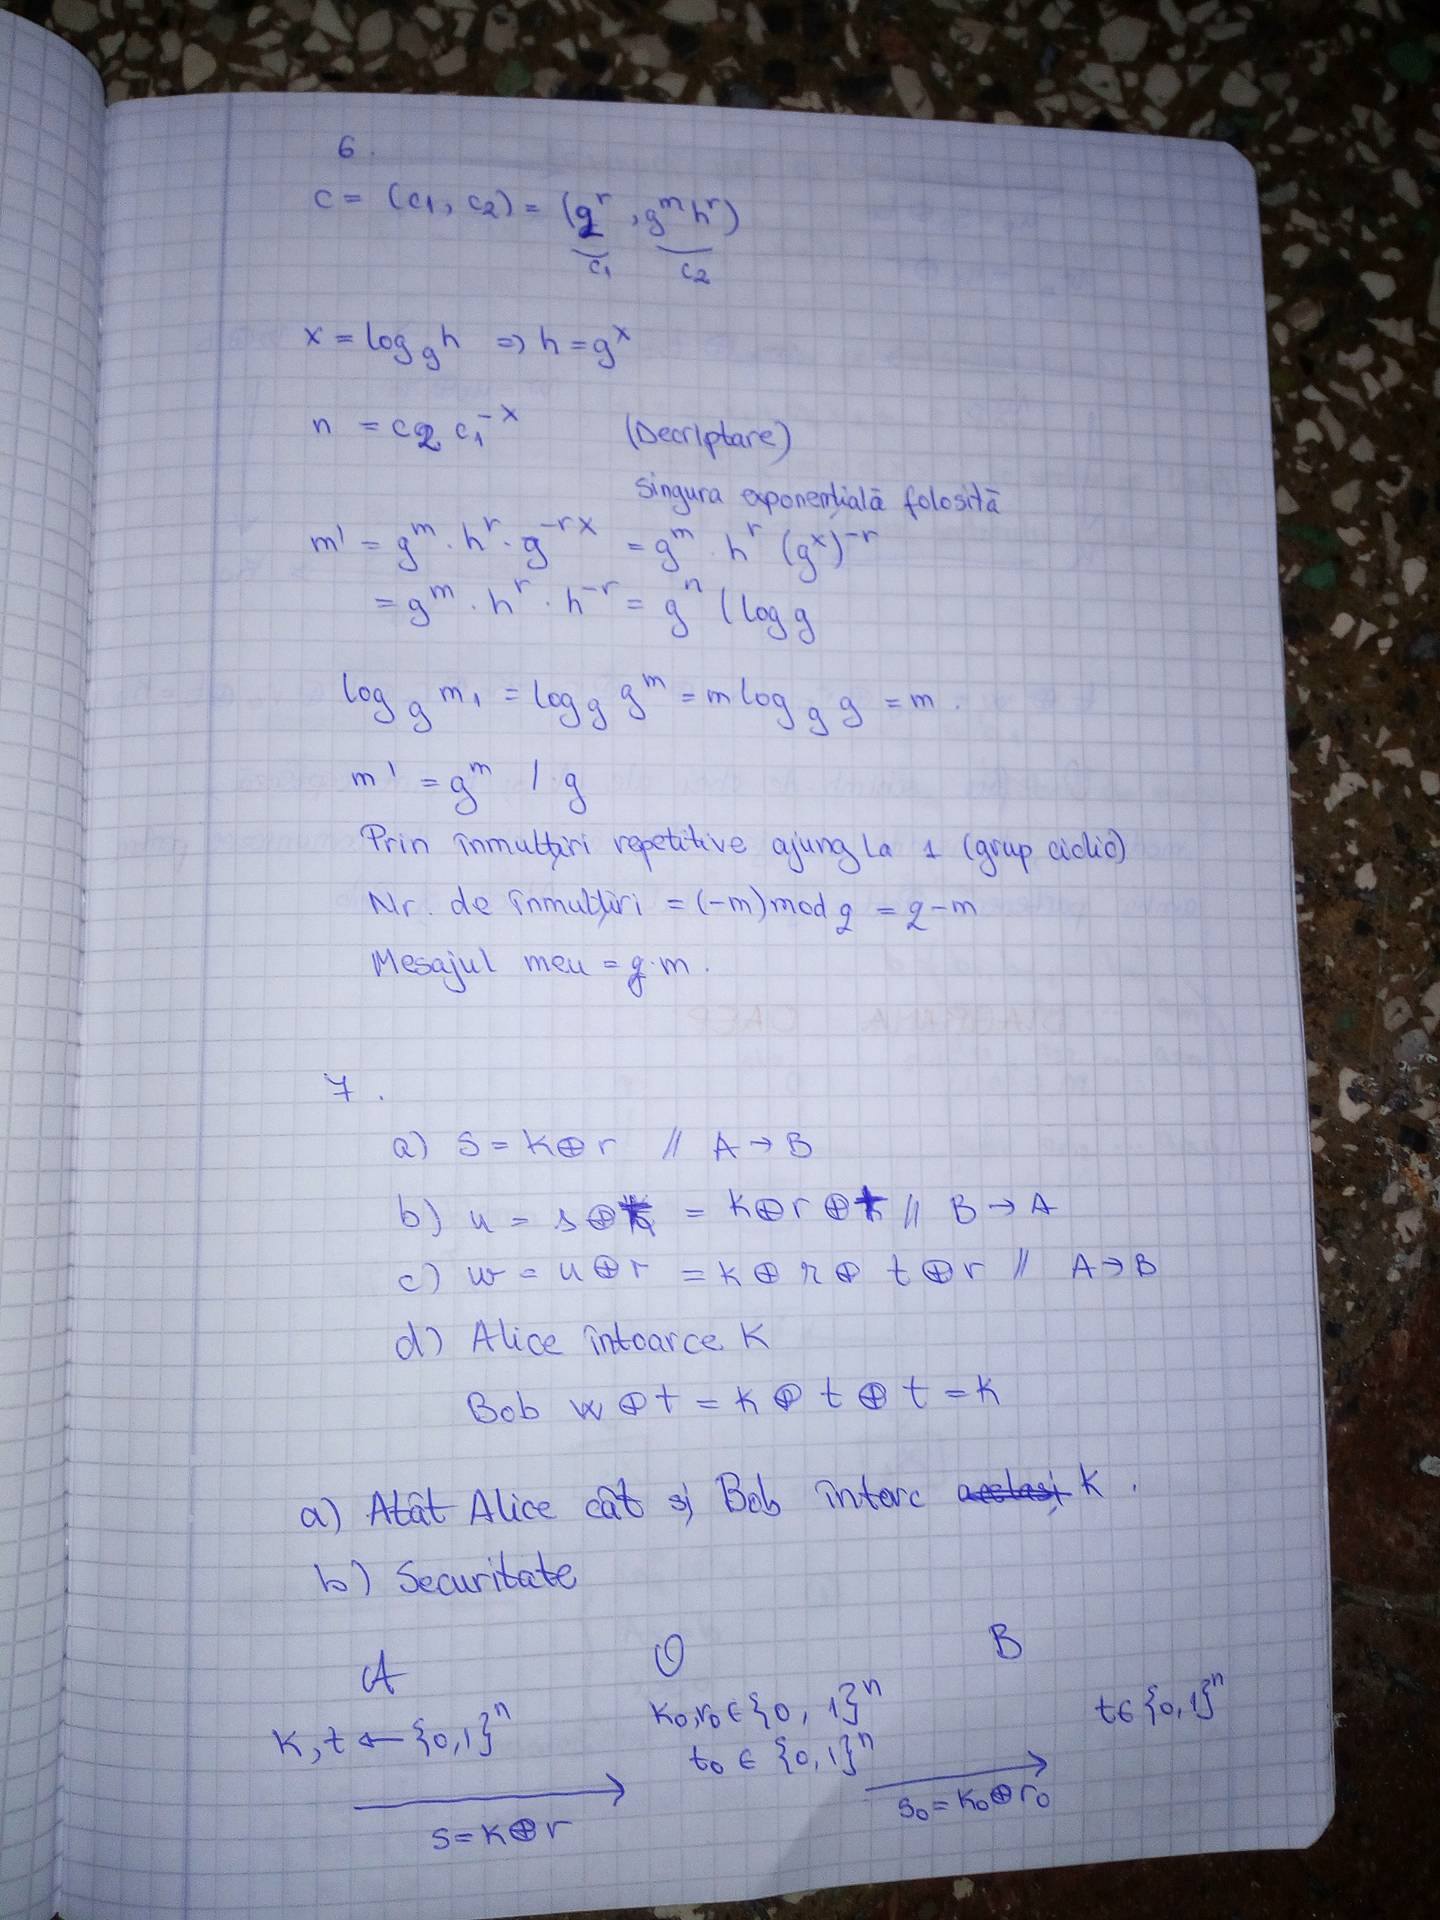 6.
c = (c₁, c₂) = (gʳ, gᵐhʳ)
c₁ c₂
x = log_g h => h = gˣ
n = c₂ c₁⁻ˣ (Decriptare)
singura exponențială folosită
m' = gᵐ · hʳ · g⁻ʳˣ = gᵐ · hʳ (gˣ)⁻ʳ
= gᵐ · hʳ · h⁻ʳ = gⁿ (log g
log_g m₁ = log_g gᵐ = m log_g g = m.
m' = gᵐ / g
Prin înmulțiri repetitive ajung la 1 (grup ciclic)
Nr. de înmulțiri = (-m) mod q = q - m
Mesajul meu = q·m.
7.
a) s = k⊕r // A → B
b) u = s⊕t = k⊕r⊕t // B → A
c) w = u⊕r = k⊕r⊕t⊕r // A → B
d) Alice întoarce k
Bob w⊕t = k⊕t⊕t = k
a) Atât Alice cât și Bob întorc k.
b) Securitate
A O B
k, t ← {0,1}ⁿ k₀, r₀ ∈ {0, 1}ⁿ t ∈ {0,1}ⁿ
t₀ ∈ {0,1}ⁿ
s = k⊕r s₀ = k₀⊕r₀